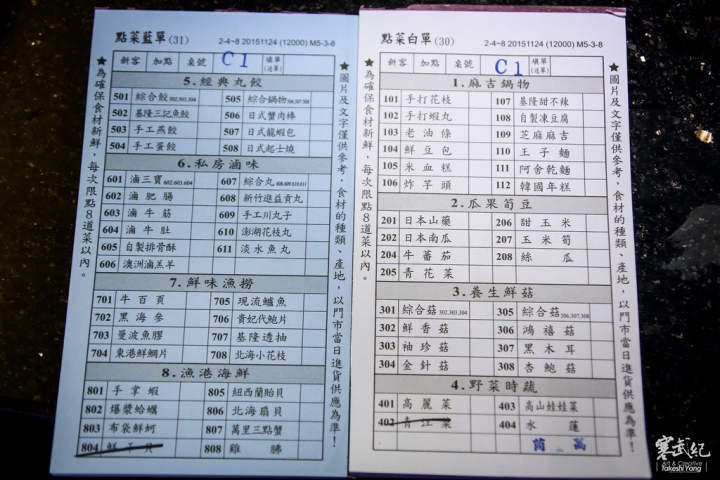 點菜藍單(31)
2-4~8 20151124 (12000) M5-3-8
新客 加點 桌號 C1 填單(送單)
★為確保食材新鮮，每次限點8道菜以內。
5.經典丸餃
501 綜合餃502.503.504 505 綜合鍋物506.507.508
502 基隆三記魚餃 506 日式蟹肉棒
503 手工燕餃 507 日式龍蝦包
504 手工蛋餃 508 日式起士燒
6.私房滷味
601 滷三寶602.603.604 607 綜合丸608.609.610.611
602 滷肥腸 608 新竹進益貢丸
603 滷牛筋 609 手工川丸子
604 滷牛肚 610 澎湖花枝丸
605 自製排骨酥 611 淡水魚丸
606 澳洲滷羔羊
7.鮮味漁撈
701 牛百頁 705 現流鱸魚
702 黑海參 706 貴妃代鮑片
703 曼波魚膠 707 基隆透抽
704 東港鮮鯛片 708 北海小花枝
8.漁港海鮮
801 手掌蝦 805 紐西蘭貽貝
802 爆漿蛤蠣 806 北海扇貝
803 布袋鮮蚵 807 萬里三點蟹
804 鮮干貝 808 雞肺
★圖片及文字僅供參考，食材的種類、產地，以門市當日進貨供應為準！
點菜白單(30)
2-4~8 20151124 (12000) M5-3-8
新客 加點 桌號 C1 填單(送單)
★為確保食材新鮮，每次限點8道菜以內。
1.麻吉鍋物
101 手打花枝 107 基隆甜不辣
102 手打蝦丸 108 自製凍豆腐
103 老油條 109 芝麻麻吉
104 鮮豆包 110 王子麵
105 米血糕 111 阿舍乾麵
106 炸芋頭 112 韓國年糕
2.瓜果筍豆
201 日本山藥 206 甜玉米
202 日本南瓜 207 玉米筍
204 牛蕃茄 208 絲瓜
205 青花菜
3.養生鮮菇
301 綜合菇302.303.304 305 綜合菇306.307.308
302 鮮香菇 306 鴻禧菇
303 袖珍菇 307 黑木耳
304 金針菇 308 杏鮑菇
4.野菜時蔬
401 高麗菜 403 高山娃娃菜
402 青江菜 404 水蓮
茼 萵
★圖片及文字僅供參考，食材的種類、產地，以門市當日進貨供應為準！
寒武紀
Art & Creative
Takeshi Yang